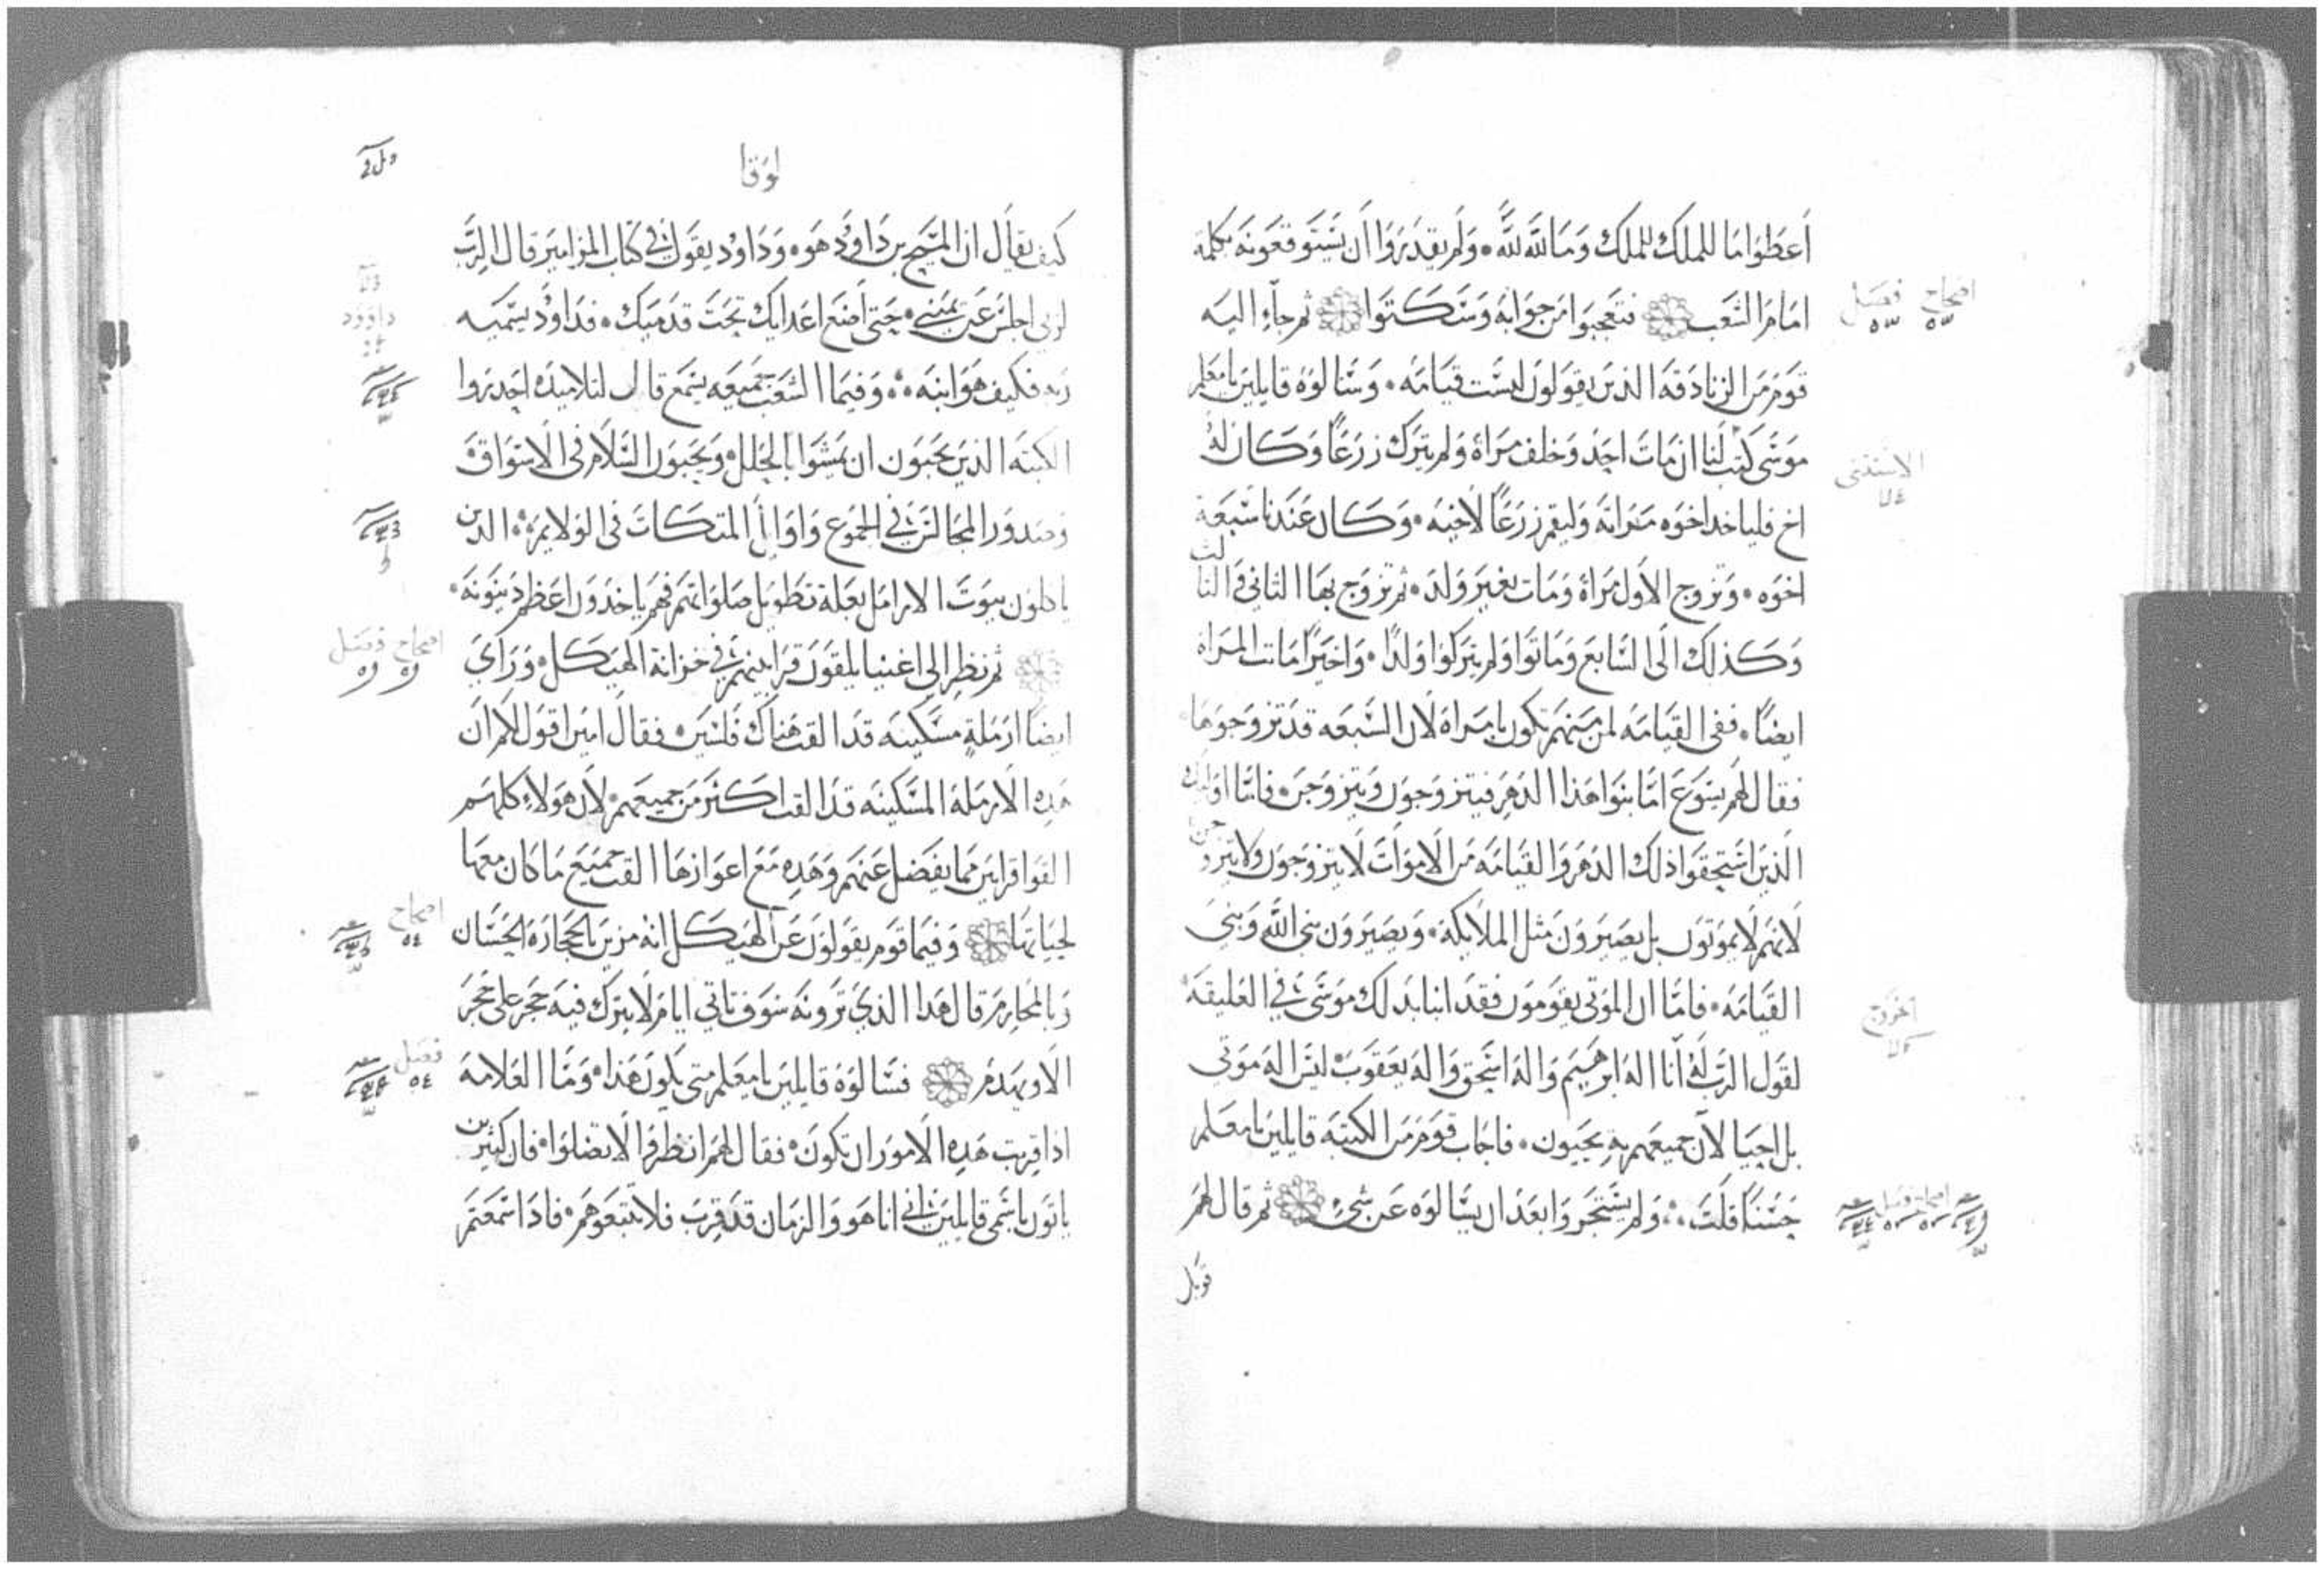 اعطوا ما للملك للملك وما لله لله ولم يقدروا ان يستوقعونه بكلمة
امام الشعب فتعجبوا من جوابه وسكتوا ثم جاء اليه
قوم من الزنادقه الذين يقولون ليست قيامه وسالوه قايلين يامعلم
موسى كتب لنا ان مات احد وخلف مراة ولم يترك زرعًا وكان له
اخ فلياخد اخوه مراته وليقم زرعًا لاخيه وكان عندنا سبعة
اخوه وتزوج الاول مراة ومات بغير ولد ثم تزوج بها الثاني والثالث
وكذلك الى السابع وماتوا ولم يتركوا ولدًا واخيرًا ماتت المراة
ايضًا ففى القيامه لمن منهم تكون امراة لان السبعه قد تزوجوها
فقال لهم يسوع اما بنوا هذا الدهر فيتزوجون ويتزوجن فاما اوليك
الذين استحقوا ذلك الدهر والقيامه من الاموات لا يتزوجون ولا يتزوجن
لانهم لا يموتون بل يصيرون مثل الملايكة ويصيرون بني الله وبني
القيامه فاما ان الموتى يقومون فقد انبا بدلك موسى في العليقة
لقول الرب له انا اله ابرهيم واله اسحق واله يعقوب ليس اله موتى
بل احيا لان جميعهم به يحيون فاجاب قوم من الكتبة قايلين يامعلم
حسنًا قلت ولم يستجروا بعد ان يسالوه عن شيء ثم قال لهم
قوبل
اصحاح فصل
٥٣ ٥٣
الاستثنى
اخروج
اصحاح فصل
لوقا
كيف يقال ان المسيح بن داود هو وداود يقول في كتاب المزامير قال الرب
لربي اجلس عن يميني حتى اضع اعدايك تحت قدميك فداود يسميه
ربه فكيف هو ابنه وفيما الشعب جميعه يسمع قال لتلاميده احدروا
الكتبه الذين يحبون ان يمشوا بالحلل ويحبون السلام فى الاسواق
وصدور المجالس في الجموع واوايل المتكات فى الولايم الدين
ياكلون بيوت الارامل بعلة تطويل صلواتهم فهم ياخدون اعظم دينونه
ثم نظر الى اغنيا يلقون قرابينهم في خزانة الهيكل وراي
ايضا ارملة مسكينه قد القت هناك فلسين فقال امين اقول لكم ان
هده الارملة المسكينه قد القت اكثر من جميعهم لان هولاء كلهم
القوا قرابين مما يفضل عنهم وهده مع اعوازها القت جميع ما كان معها
لحياتها وفيما قوم يقولون عن الهيكل انه مزين بالحجارة الحسان
وبالمحارم قال هدا الذي ترونه سوف تاتي ايام لا يترك فيه حجر على حجر
الا ويهدم فسالوه قايلين يامعلم متى يكون هذا وما العلامة
اذا قربت هده الامور ان تكون فقال لهم انظروا لا تضلوا فان كثيرين
ياتون باسمي قايلين اني انا هو والزمان قد قرب فلا تتبعوهم فاذا سمعتم
داوود
اصحاح فصل
اصحاح
٥٤
فصل
٥٤